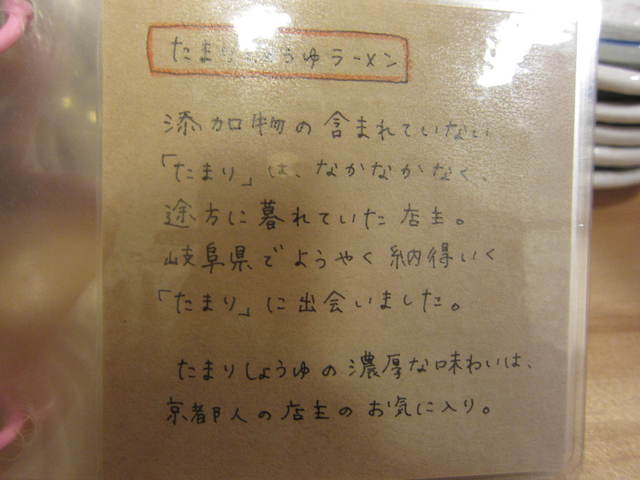 たまりしょうゆラーメン
添加物の含まれていない
「たまり」は、なかなかなく、
途方に暮れていた店主。
岐阜県でようやく納得いく
「たまり」に出会いました。
たまりしょうゆの濃厚な味わいは、
京都人の店主のお気に入り。